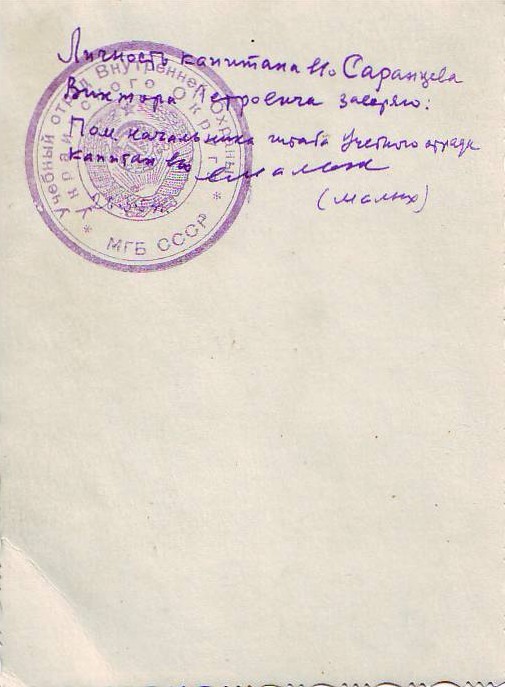 Личность капитана в/о Саранцева
Виктора Петровича заверяю:
Пом начальника штаба Учебного отряда
Капитан в/о
(Малых)
Учебный отряд Внутренней Охраны
Украинского Округа
* МГБ СССР *